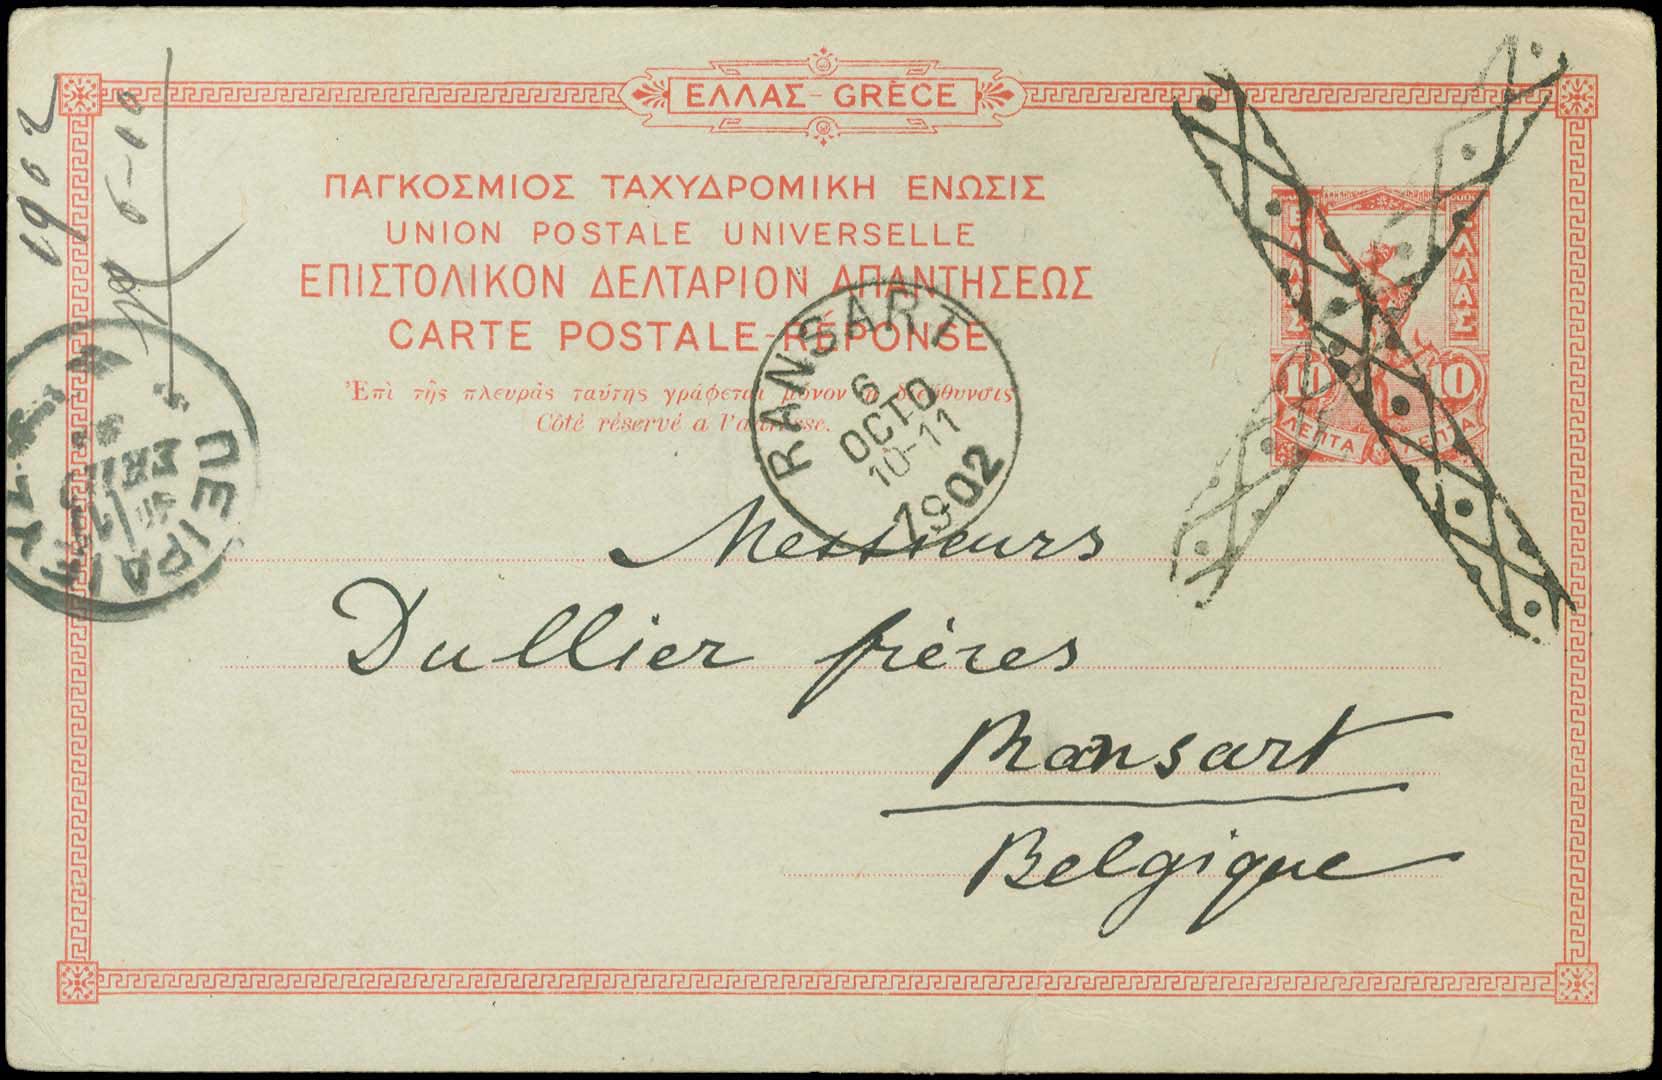 ΕΛΛΑΣ - GRÈCE
ΠΑΓΚΟΣΜΙΟΣ ΤΑΧΥΔΡΟΜΙΚΗ ΕΝΩΣΙΣ
UNION POSTALE UNIVERSELLE
ΕΠΙΣΤΟΛΙΚΟΝ ΔΕΛΤΑΡΙΟΝ ΑΠΑΝΤΗΣΕΩΣ
CARTE POSTALE-RÉPONSE
Ἐπὶ τῆς πλευρᾶς ταύτης γράφεται μόνον ἡ διεύθυνσις
Côté réservé a l'adresse.
ΕΛΛΑΣ
ΕΛΛΑΣ
10
10
ΛΕΠΤΑ
ΛΕΠΤΑ
1902
6-10
RANSART
6
OCTO
10-11
1902
ΠΕΙΡΑΙ
ΣΕΠ
Messieurs
Dullier frères
Ransart
Belgique